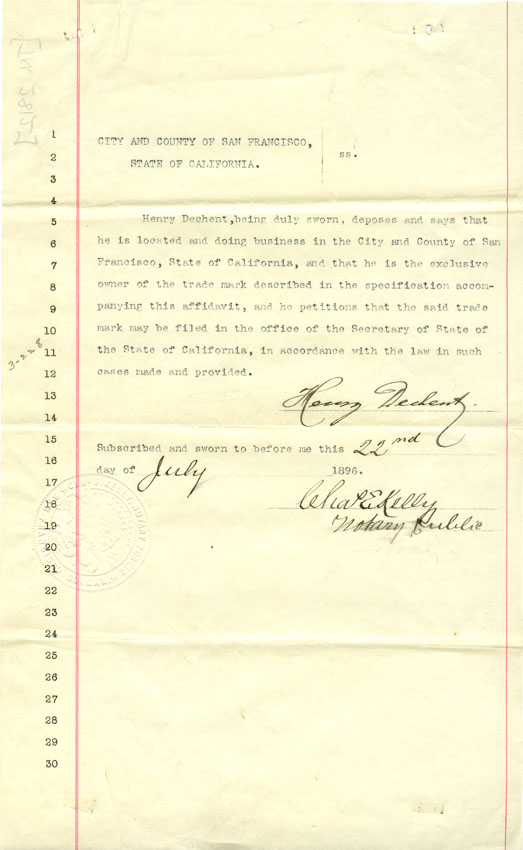 1 CITY AND COUNTY OF SAN FRANCISCO,
2 STATE OF CALIFORNIA. ss.
3
4
5 Henry Dechent,being duly sworn, deposes and says that
6 he is located and doing business in the City and County of San
7 Francisco, State of California, and that he is the exclusive
8 owner of the trade mark described in the specification accom-
9 panying this affidavit, and he petitions that the said trade
10 mark may be filed in the office of the Secretary of State of
3-228
11 the State of California, in accordance with the law in such
12 cases made and provided.
13 Henry Dechent.
14
15 Subscribed and sworn to before me this 22nd
16 day of July 1896.
17
18 Chas E Kelly
19 Notary Public
20
21
22
23
24
25
26
27
28
29
30